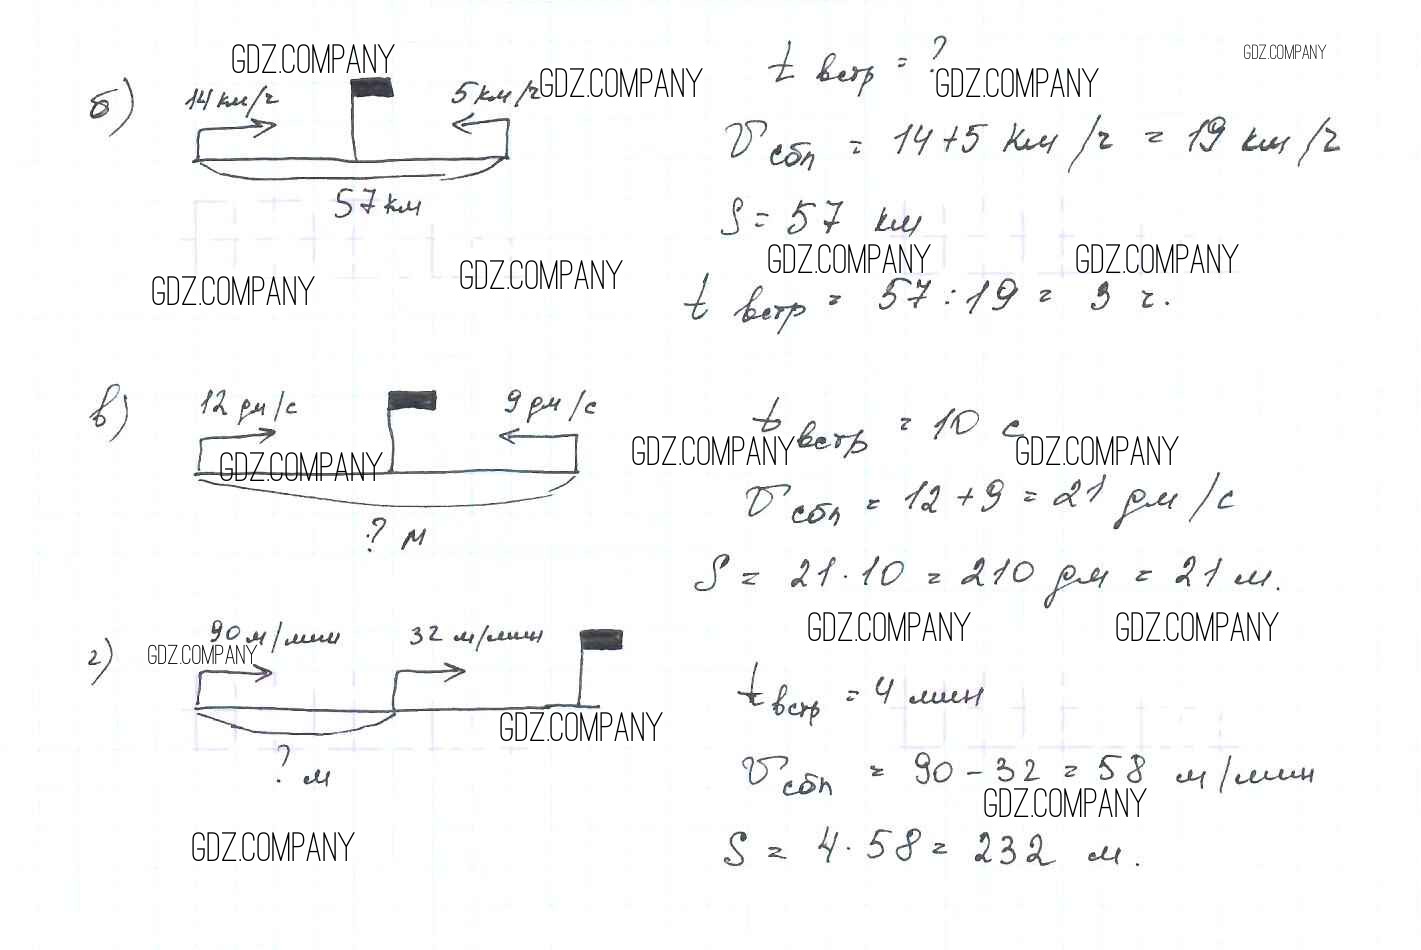 GDZ.COMPANY
GDZ.COMPANY
GDZ.COMPANY
GDZ.COMPANY
б)
14 км/ч
5 км/ч
57 км
t встр = ?
V сбл = 14+5 км/ч = 19 км/ч
S = 57 км
GDZ.COMPANY
GDZ.COMPANY
GDZ.COMPANY
GDZ.COMPANY
t встр = 57 : 19 = 3 ч.
в)
12 дм/с
9 дм/с
? м
GDZ.COMPANY
t встр = 10 с
GDZ.COMPANY
GDZ.COMPANY
V сбл = 12 + 9 = 21 дм/с
S = 21 · 10 = 210 дм = 21 м.
GDZ.COMPANY
GDZ.COMPANY
г)
90 м/мин
32 м/мин
GDZ.COMPANY
? м
GDZ.COMPANY
t встр = 4 мин
V сбл = 90 - 32 = 58 м/мин
GDZ.COMPANY
S = 4 · 58 = 232 м.
GDZ.COMPANY